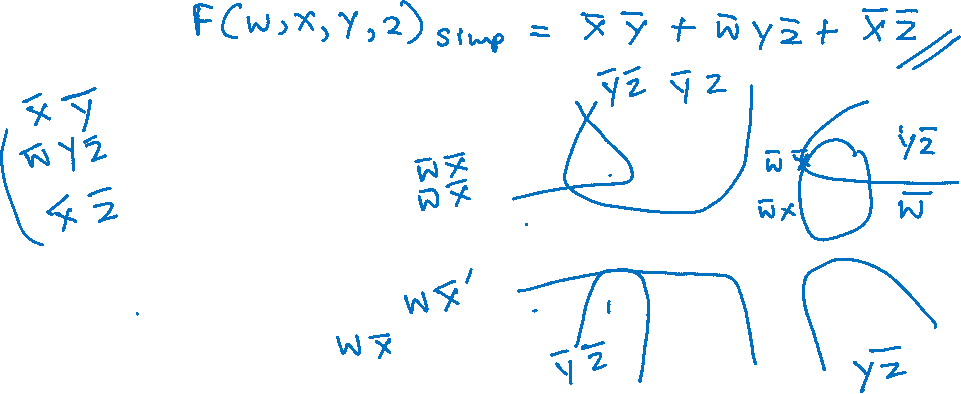 F(W,X,Y,Z) simp = X̅ Y̅ + W̅ Y Z̅ + X̅ Z̅
X̅ Y̅
W̅ Y Z̅
X̅ Z̅
Y̅ Z̅ Y̅ Z
Y Z̅
W̅ X̅
W̅ X̅
W̅ X̅
W̅ X
W̅
W X̅'
W X̅
Y̅ Z̅
Y Z̅